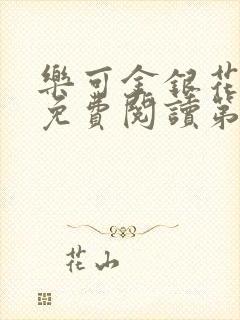 樂可金銀花
免費閱讀第
花山